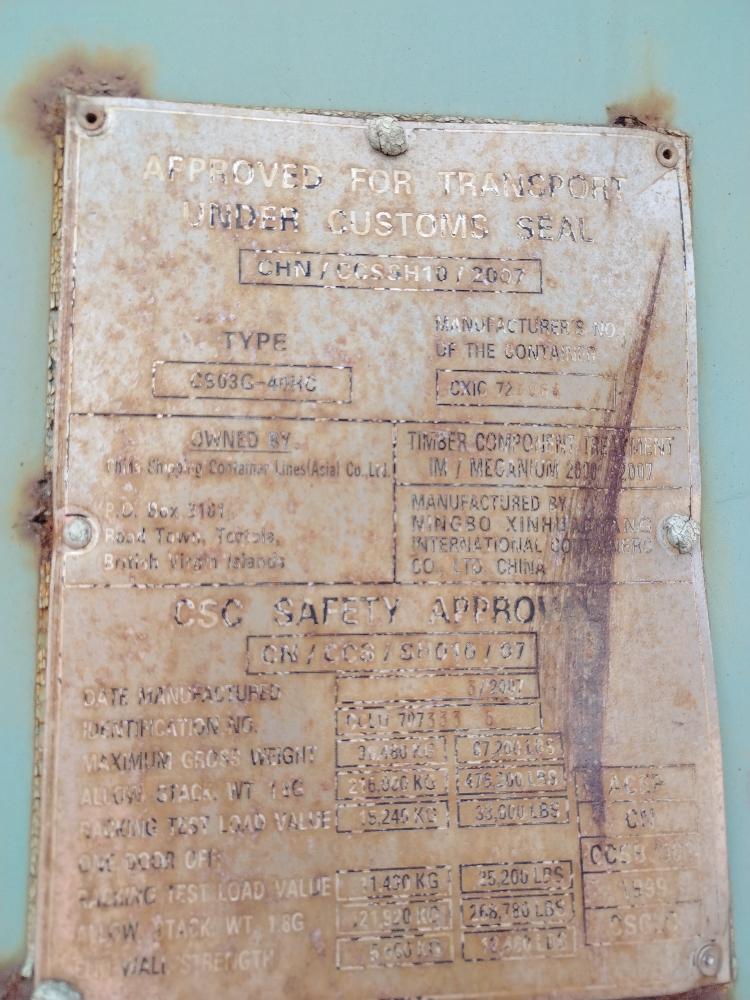 APPROVED FOR TRANSPORT
UNDER CUSTOMS SEAL
CHN / CCSSH10 / 2007
TYPE
MANUFACTURER'S NO.
OF THE CONTAINER
CS03G-40HC
CXIC 72
OWNED BY
China Shipping Container Lines(Asia) Co.,Ltd.
P.O. Box 3161
Road Town, Tortola,
British Virgin Islands
TIMBER COMPONENT TREATMENT
IM / MEGANIUM 2000 2007
MANUFACTURED BY
NINGBO XINHUACHANG
INTERNATIONAL CONTAINERS
CO., LTD. CHINA
CSC SAFETY APPROVAL
CN / CCS / SH010 / 07
DATE MANUFACTURED 3/2007
IDENTIFICATION NO. 707333 6
MAXIMUM GROSS WEIGHT KG 67,200 LBS
ALLOW. STACK. WT. 1.8G KG 476,200 LBS
RACKING TEST LOAD VALUE 15,240 KG 33,600 LBS
ONE DOOR OFF:
RACKING TEST LOAD VALUE 11,430 KG 25,200 LBS
ALLOW. STACK. WT. 1.8G 121,920 KG 268,780 LBS
END WALL STRENGTH KG LBS
ACEP
CN
CCSH
1999